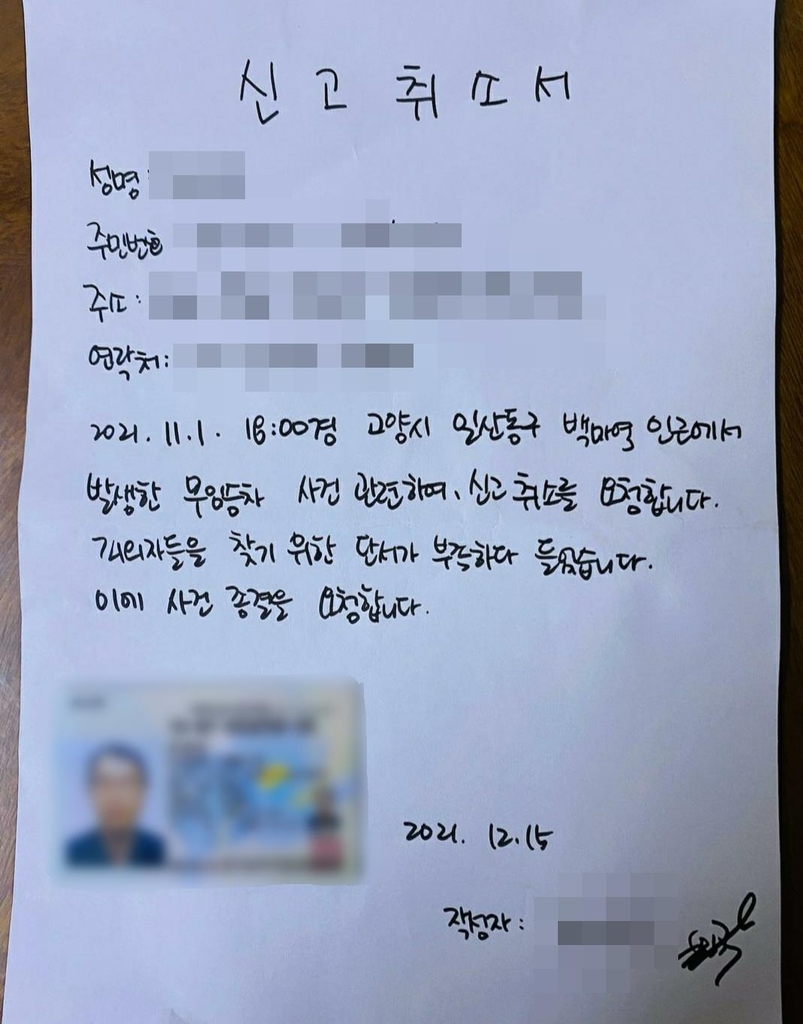 신고취소서
성명:
주민번호
주소:
연락처:
2021.11.1. 18:00경 고양시 일산동구 백마역 인근에서
발생한 무임승차 사건 관련하여, 신고 취소를 요청합니다.
피의자들을 찾기 위한 단서가 부족하다 들었습니다.
이에 사건 종결을 요청합니다.
2021. 12.15
작성자: